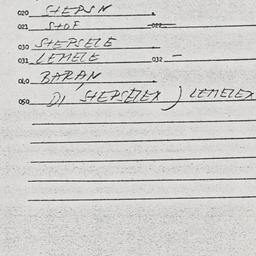 020 STEPSN
021 STOF 022
030 STEPSELE
031 LEMELE 032 –
040 BARAN
050 DI STEPSELEX ) LEMELEX